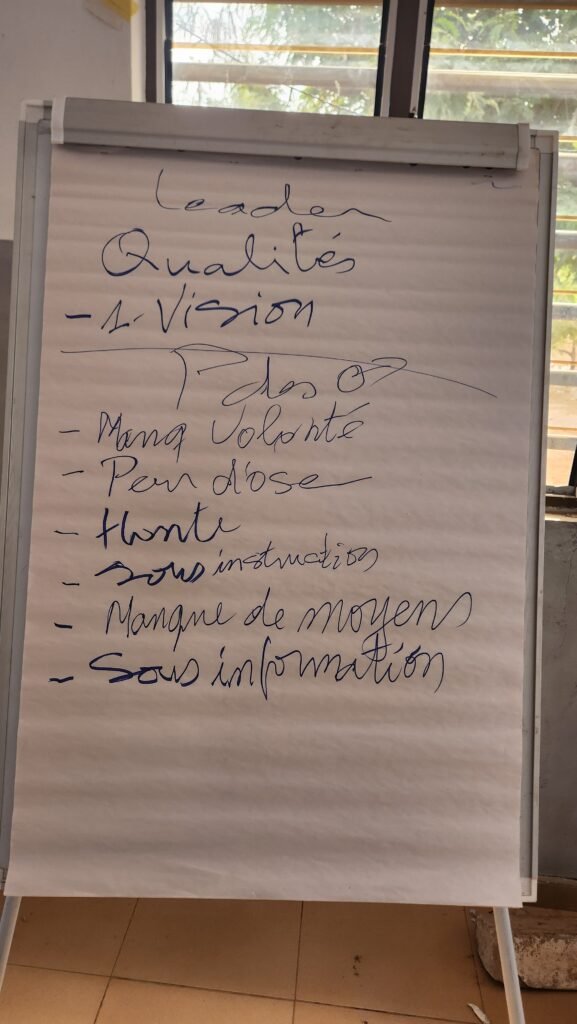 Leader
Qualités
- 1. Vision
- Manq Volonté
- Peur d'oser
- Honte
- Sous instruction
- Manque de moyens
- Sous information